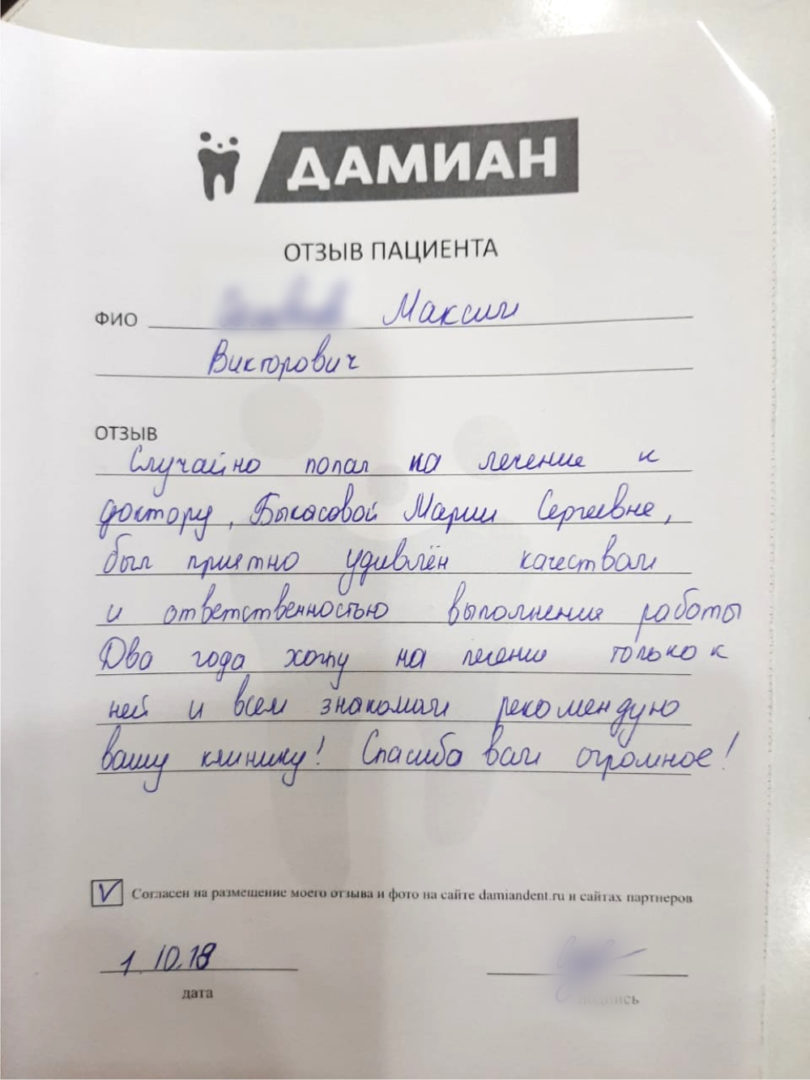 ДАМИАН
ОТЗЫВ ПАЦИЕНТА
ФИО Максим
Викторович
ОТЗЫВ
Случайно попал на лечение к
доктору, Быкасовой Марии Сергеевне,
был приятно удивлён качеством
и ответственностью выполнения работы
Два года хожу на лечение только к
ней и всем знакомым рекомендую
вашу клинику! Спасибо вам огромное!
V Согласен на размещение моего отзыва и фото на сайте damiandent.ru и сайтах партнеров
1.10.18
дата
подпись